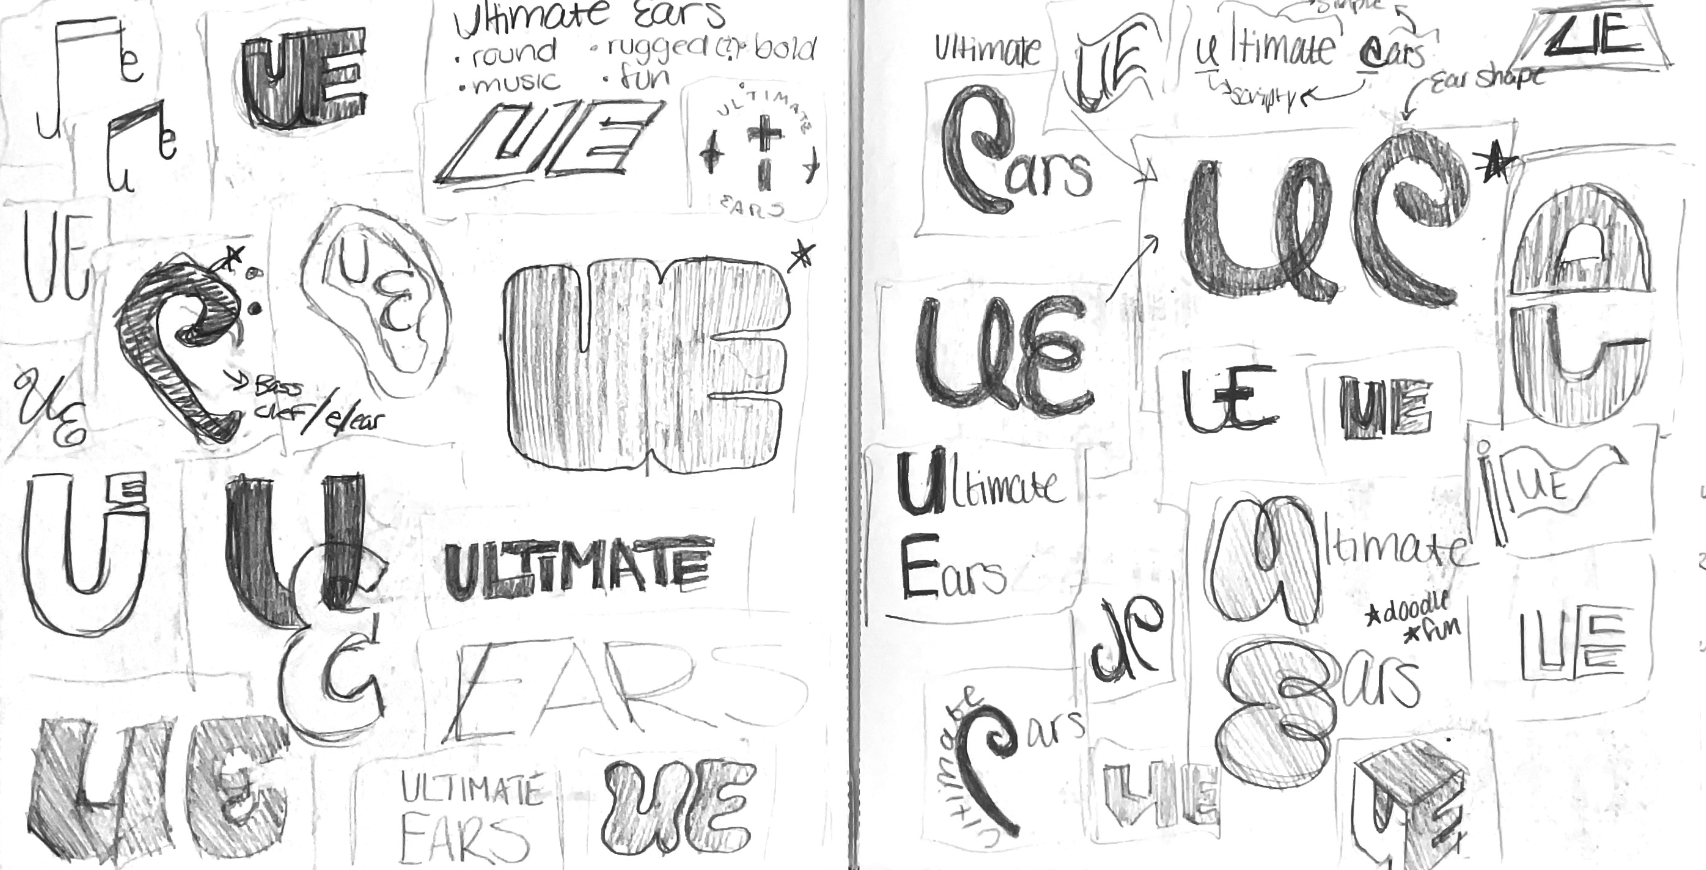 ue
ue
UE
Ultimate Ears
• round • rugged(?) • bold
• music • fun
UE
ULTIMATE
EARS
UE
UE
→ Bass
clef/e/ear
UE
UE
UE
UE
ULTIMATE
EARS
UE
ULTIMATE
EARS
UE
simple
Ultimate
ears
UE
ultimate ears
scripty
ear shape
UE
ue
ue
eu
UE
UE
Ultimate
Ears
UE
ultimate
Ears
★doodle
★fun
UE
ue
ultimate
ears
UE
UE